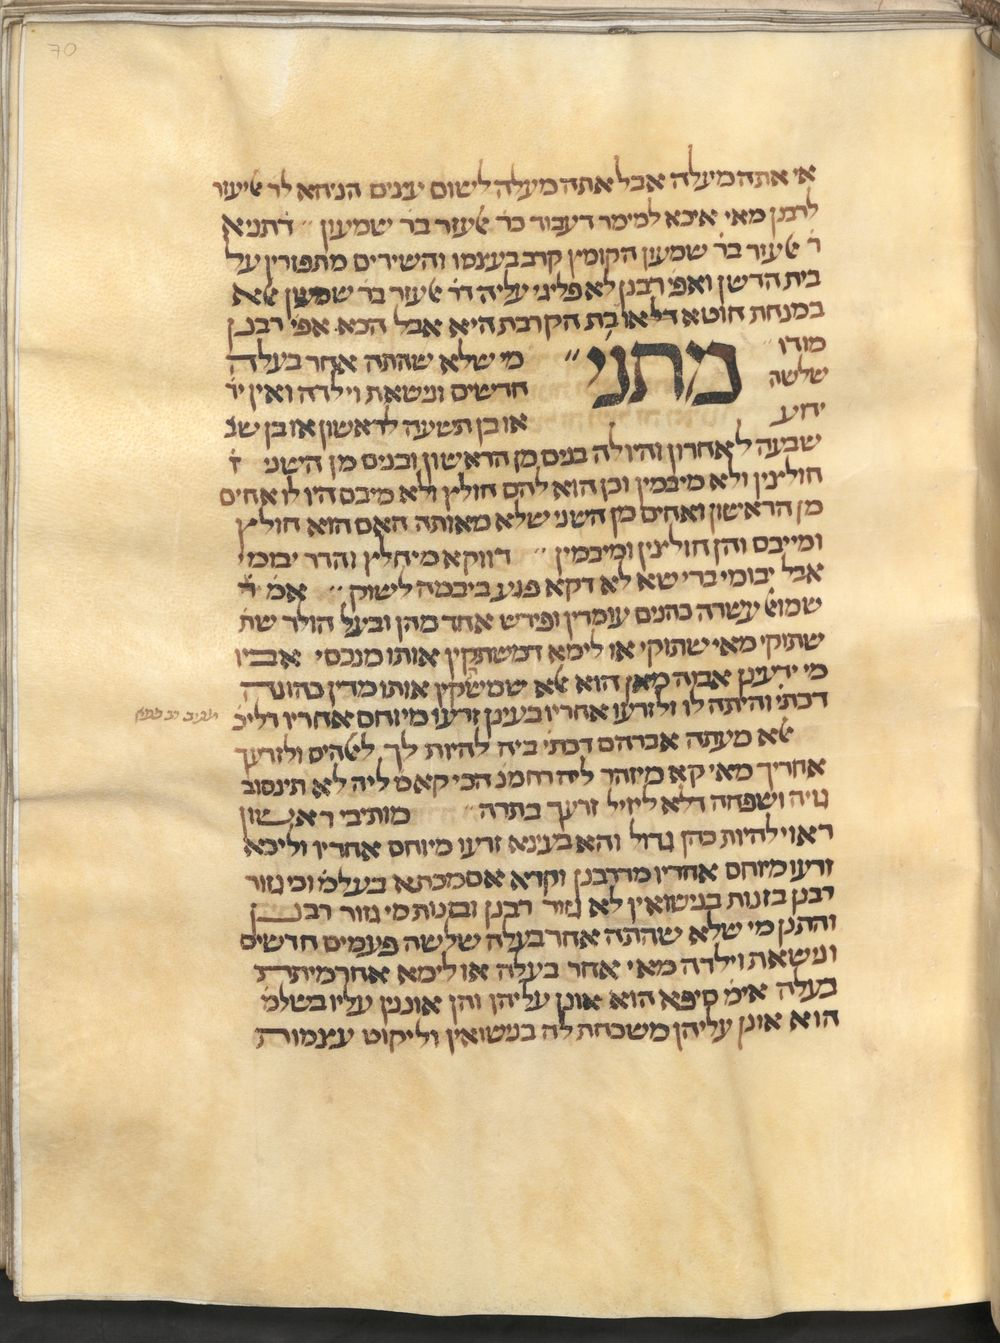 70
אי אתה מעלה אבל אתה מעלה לשום עצים הניחא לר אליעזר
לרבנן מאי איכא למימר דעבוד כר אלעזר בר שמעון דתניא
ר אלעזר בר שמעון הקומץ קרב בעצמו והשירים מתפזרין על
בית הדשן ואפי רבנן לא פליגי עליה דר אלעזר בר שמעון אלא
במנחת חוטא דלאו בת הקרבת היא אבל הכא אפי רבנן
מודו
מתני מי שלא שהתה אחר בעלה
שלשה חדשים ונשאת וילדה ואין
ידוע או בן תשעה לראשון או בן
שבעה לאחרון והיו לה בנים מן הראשון ובנים מן השני
חולצין ולא מיבמין וכן הוא להם חולץ ולא מיבם היו לו אחים
מן הראשון ואחים מן השני שלא מאותה האם הוא חולץ
ומייבם והן חולצין ומיבמין דווקא מיחלץ והדר יבומי
אבל יבומי ברישא לא דקא פגע ביבמה לשוק אמ ר
שמואל עשרה כהנים עומדין ופירש אחד מהן ובעל הולד
שתוקי מאי שתוקי אי לימא דמשתקין אותו מנכסי אביו
מי ידעינן אבוה מאן הוא אלא שמשתקין אותו מדין כהונה
דכתי והיתה לו ולזרעו אחריו בעינן זרעו מיוחס אחריו וליכ
אלא מעתה אברהם דכתי ביה להיות לך לאלהים ולזרעך
אחריך מאי קא מיזהר ליה רחמנ הכי קאמ ליה לא תינסוב
גויה ושפחה דלא ליזיל זרעך בתרה מותיבי ראשון
ראוי להיות כהן גדול והא בעינא זרעו מיוחס אחריו וליכא
זרעו מיוחס אחריו מדרבנן וקרא אסמכתא בעלמ וכי גזור
רבנן בזנות בנישואין לא גזור רבנן ובזנות מי גזור רבנן
והתנן מי שלא שהתה אחר בעלה שלשה פעמים חדשים
ונשאת וילדה מאי אחר בעלה אי לימא אחר מיתת
בעלה אימ סיפא הוא אונן עליהן והן אוננין עליו בשלמ
הוא אונן עליהן משכחת לה בנישואין וליקוט עצמות